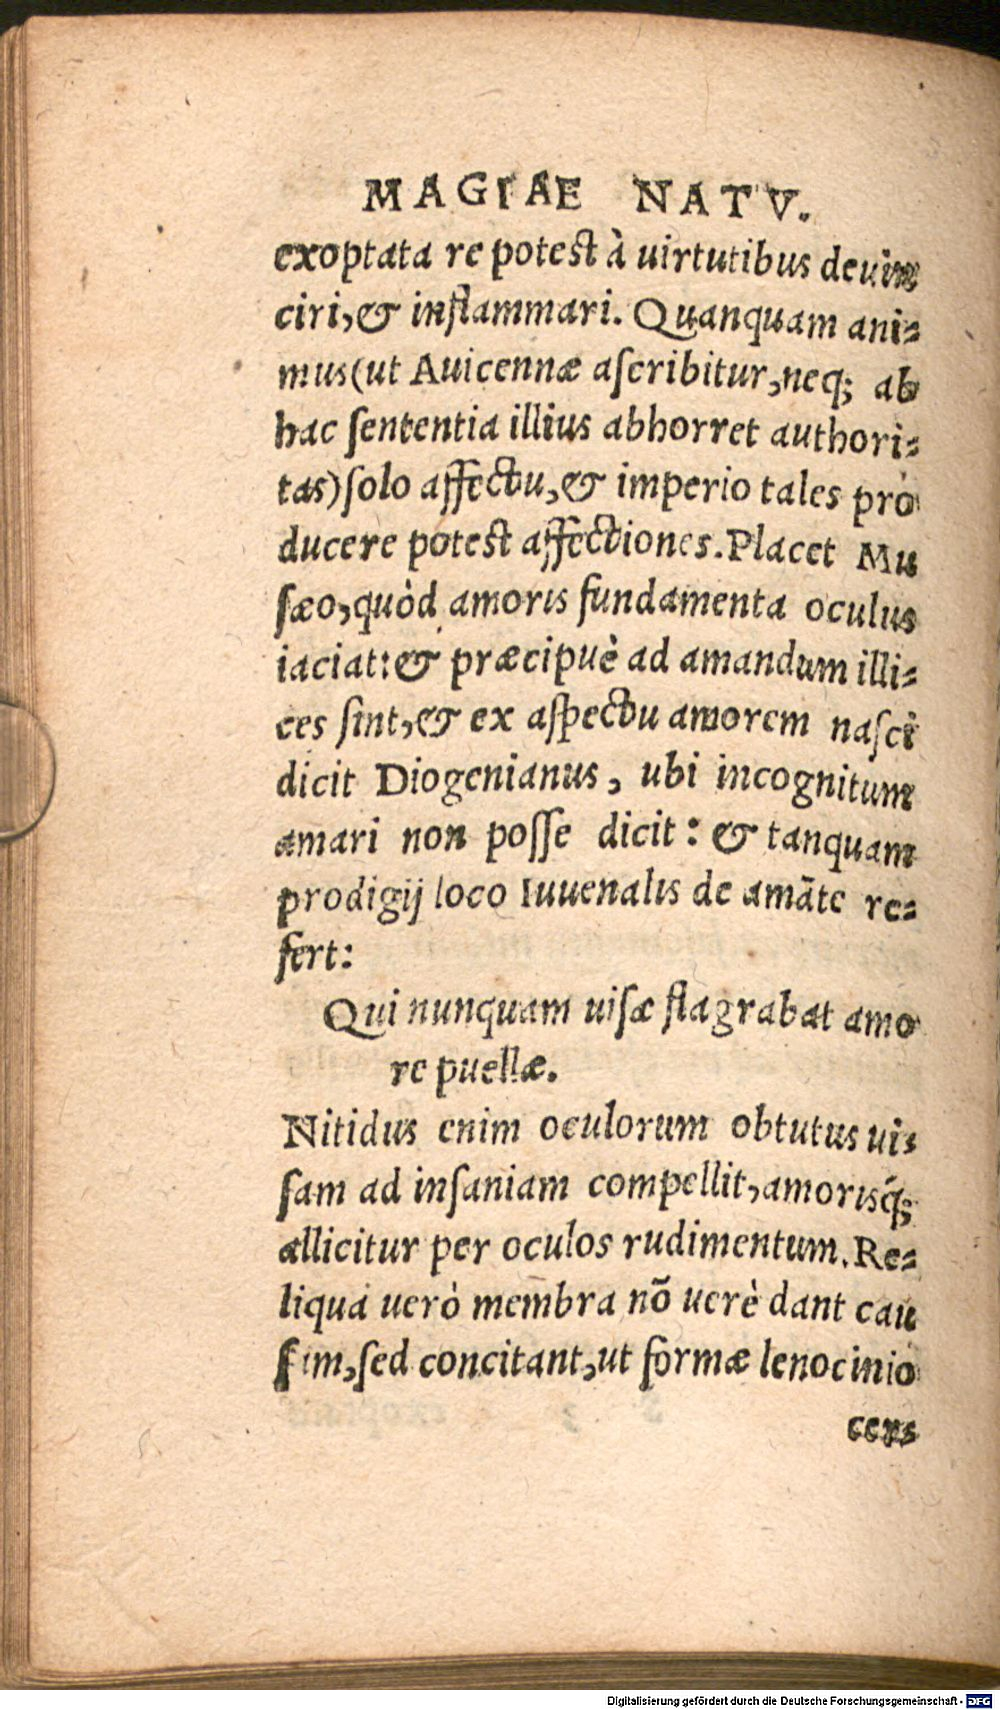 MAGIAE NATV.
exoptata re potest à uirtutibus deuin
ciri,& inflammari. Quanquam ani-
mus(ut Auicennæ aſcribitur,neq; ab
hac ſententia illius abhorret authori-
tas)ſolo affectu,& imperio tales pro
ducere potest affectiones.Placet Mu
ſæo,quòd amoris fundamenta oculus
iaciat:& præcipuè ad amandum illi-
ces ſint,& ex aſpectu amorem naſci
dicit Diogenianus, ubi incognitum
amari non poſſe dicit: & tanquam
prodigij loco Iuuenalis de amāte re-
fert:
Qui nunquam uiſæ flagrabat amo
re puellæ.
Nitidus enim oculorum obtutus ui-
ſam ad inſaniam compellit,amorisq́;
allicitur per oculos rudimentum.Re-
liqua uerò membra nō uerè dant cau
ſam,ſed concitant,ut formæ lenocinio
cers
Digitalisierung gefördert durch die Deutsche Forschungsgemeinschaft - DFG